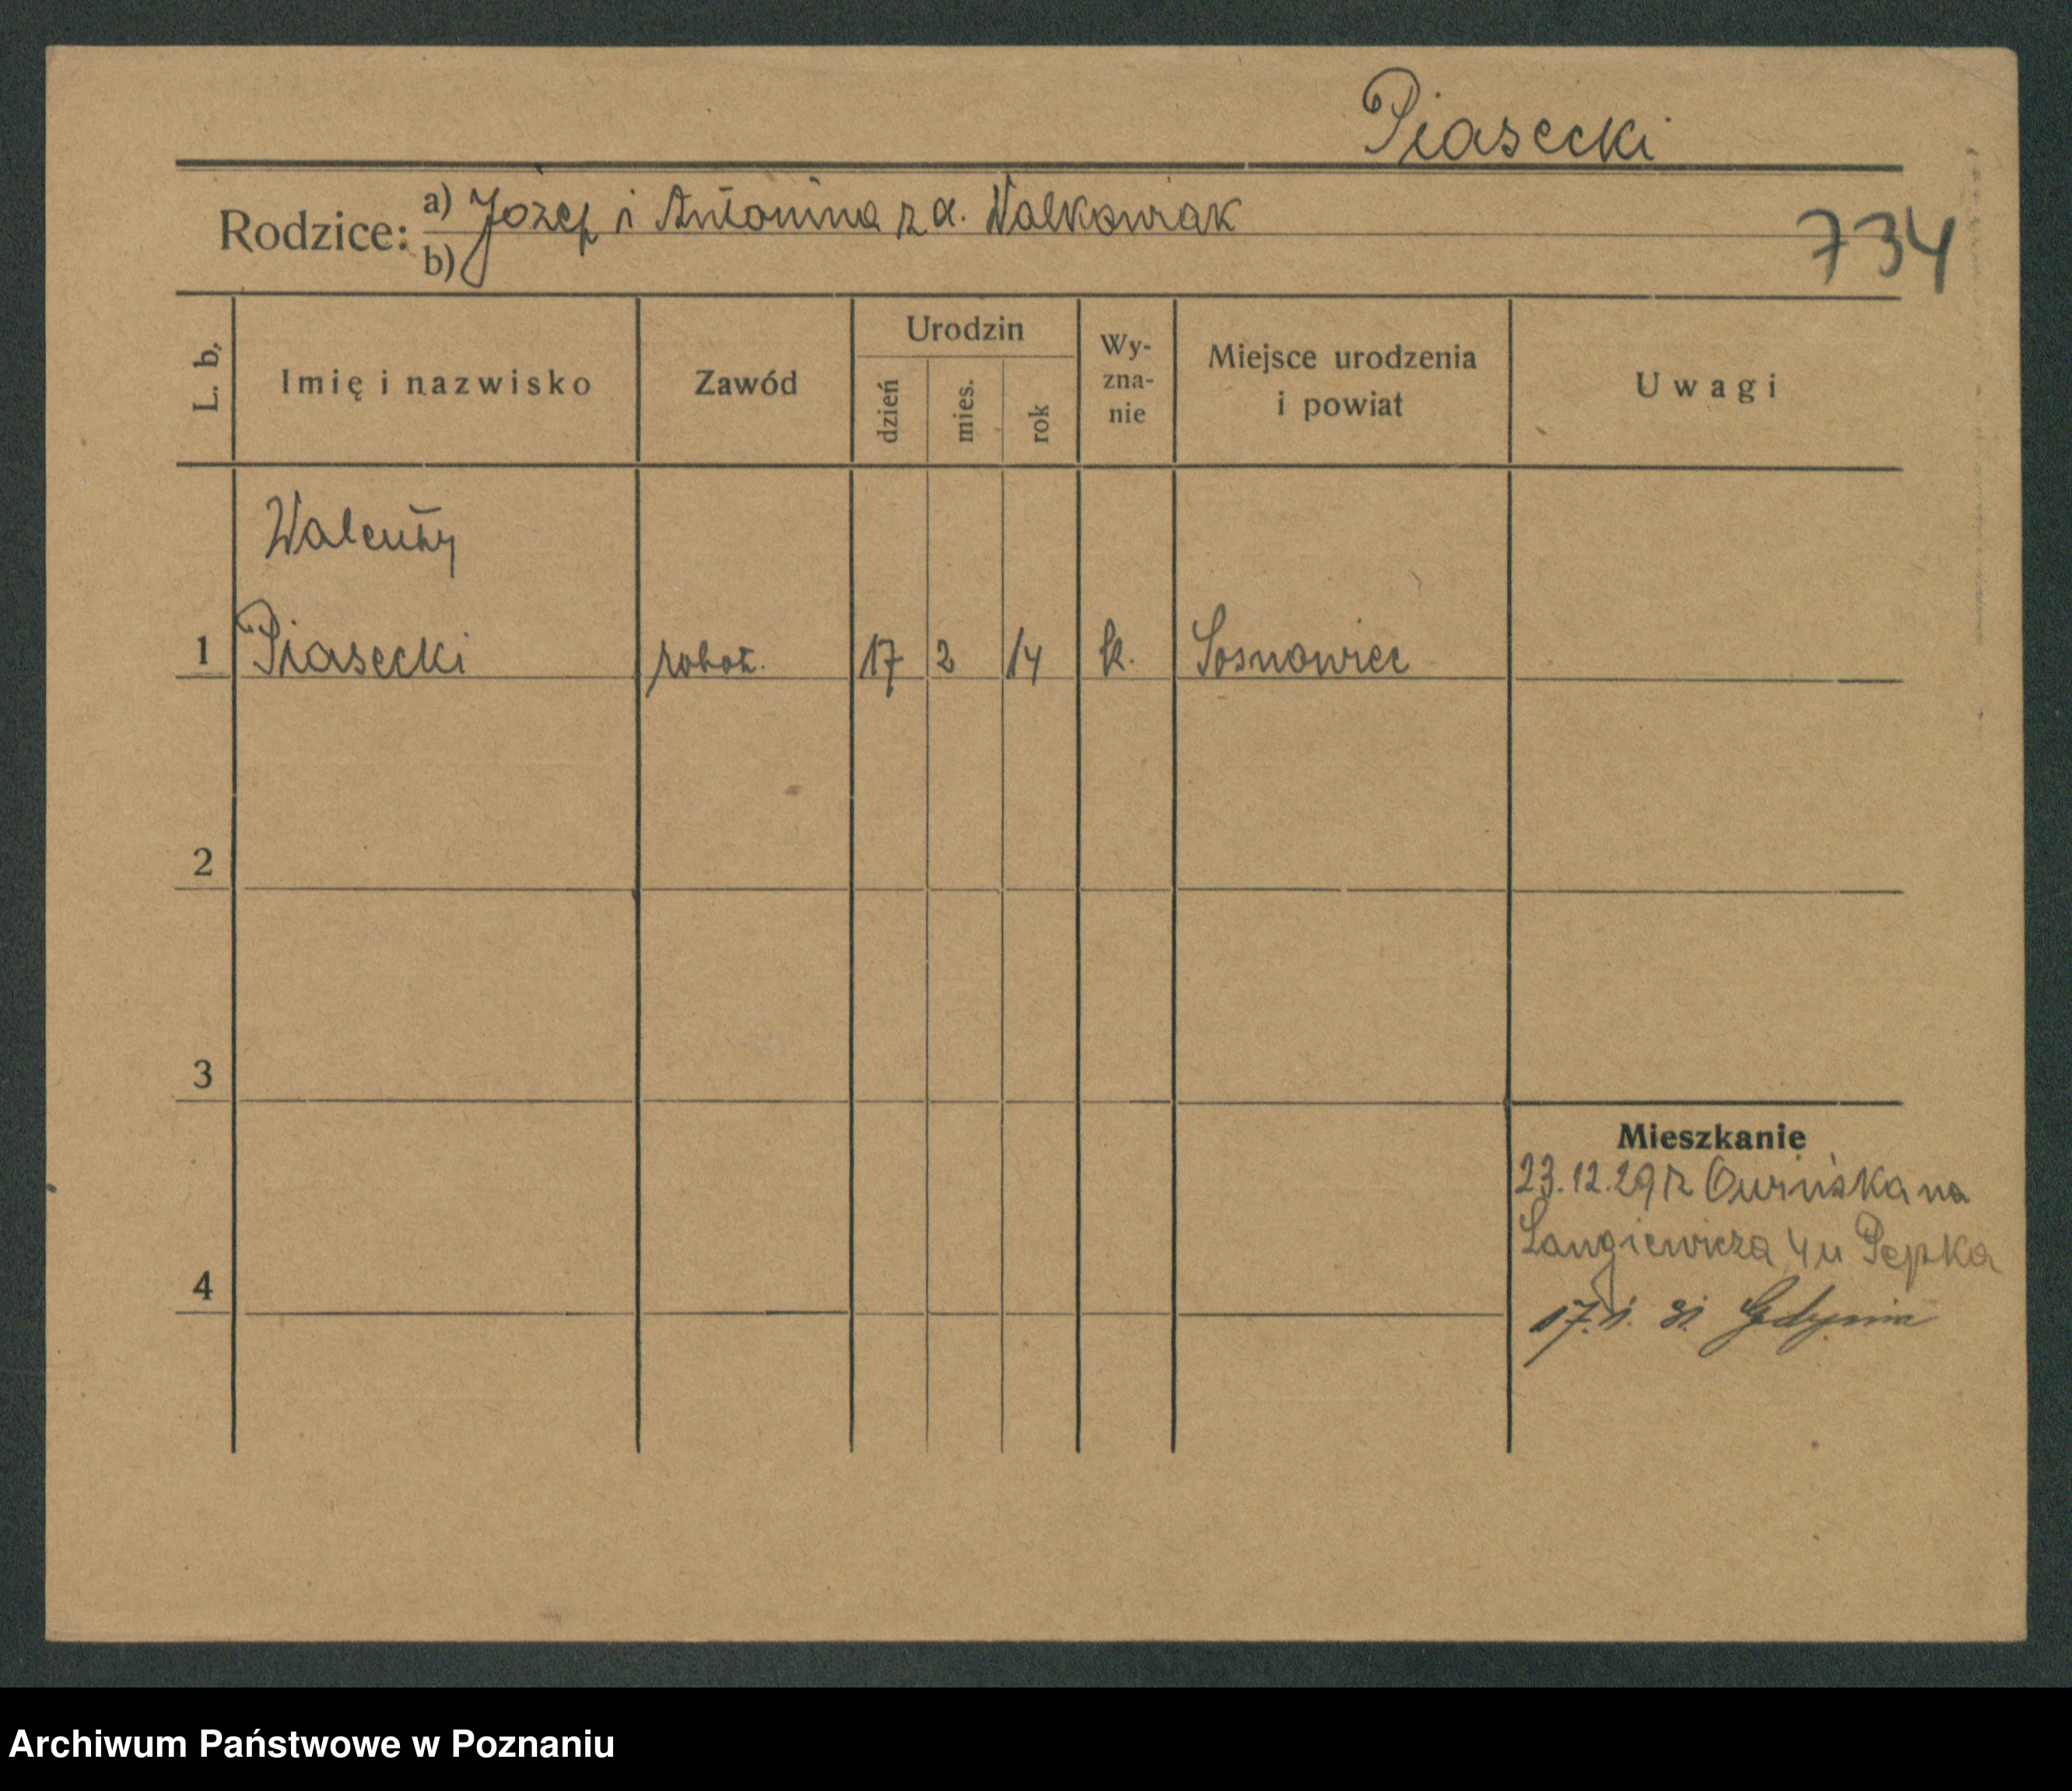 Piasecki
Rodzice: a) Józef i Antonina z d. Walkowiak
b)
734
L. b. Imię i nazwisko Zawód Urodzin dzień mies. rok Wy-zna-nie Miejsce urodzenia i powiat Uwagi
Walenty
1 Piasecki robot. 17 2 14 k. Sosnowiec
2
3
Mieszkanie
23.12.29 z Owińska na
Langiewicza 4 u Pepka
4
17.1.31 Gdynia
Archiwum Państwowe w Poznaniu